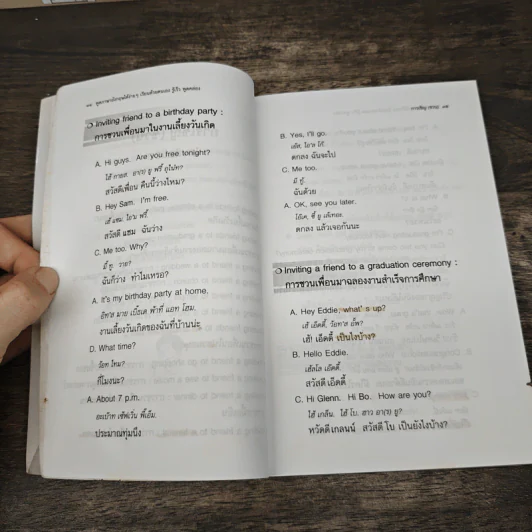 พูดภาษาอังกฤษได้ง่ายๆ เรียนด้วยตนเอง รู้เร็ว พูดคล่อง
❍ Inviting friend to a birthday party :
การชวนเพื่อนมาในงานเลี้ยงวันเกิด
A. Hi guys. Are you free tonight?
ไฮ้ กายส อา(ร) ยู ฟรี ทูไนท?
สวัสดีเพื่อน คืนนี้ว่างไหม?
B. Hey Sam. I'm free.
เฮ้ แซม. ไอม ฟรี.
สวัสดี แซม ฉันว่าง
C. Me too. Why?
มี ทู. วาย?
ฉันก็ว่าง ทำไมเหรอ?
A. It's my birthday party at home.
อิทส มาย เบิ๊รเด พ้าที่ แอท โฮม.
งานเลี้ยงวันเกิดของฉันที่บ้านน่ะ
D. What time?
ว้อท ไทม?
กี่โมงนะ?
A. About 7 p.m.
อะเบ๊าท เซ้ฟเว่น พีเอ็ม.
ประมาณทุ่มนึง
B. Yes, I'll go.
เย้ส, ไอ'ล โก๊.
ตกลง ฉันจะไป
C. Me too.
มี ทู.
ฉันด้วย
A. OK, see you later.
โอ้เค, ซี้ ยู เล้เทอะ.
ตกลง แล้วเจอกันนะ
❍ Inviting a friend to a graduation ceremony :
การชวนเพื่อนมาฉลองงานสำเร็จการศึกษา
A. Hey Eddie, what's up?
เฮ้ เอ๊ดดี้, ว้อท'ส อั๊พ?
เฮ้! เอ๊ดดี้ เป็นไงบ้าง?
B. Hello Eddie.
เฮ้ลโล เอ๊ดดี้.
สวัสดี เอ๊ดดี้
C. Hi Glenn. Hi Bo. How are you?
ไฮ้ เกล็น. ไฮ้ โบ. ฮาว อา(ร) ยู?
หวัดดี เกลนน์ สวัสดี โบ เป็นยังไงบ้าง?